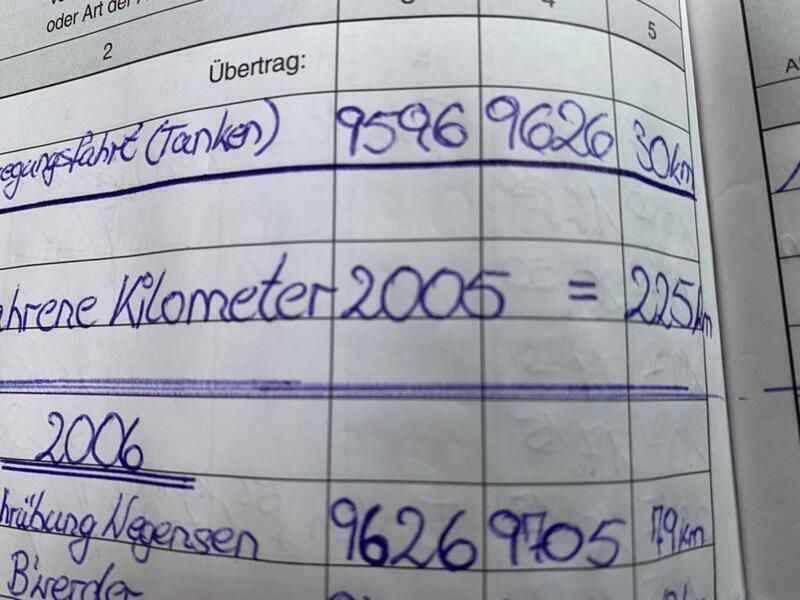 oder Art der
2 5
Übertrag:
egungsfahrt (Tanken) 9596 9626 30km
ahrene Kilometer 2005 = 225km
2006
hrübung Negensen 9626 9705 79km
B'werder